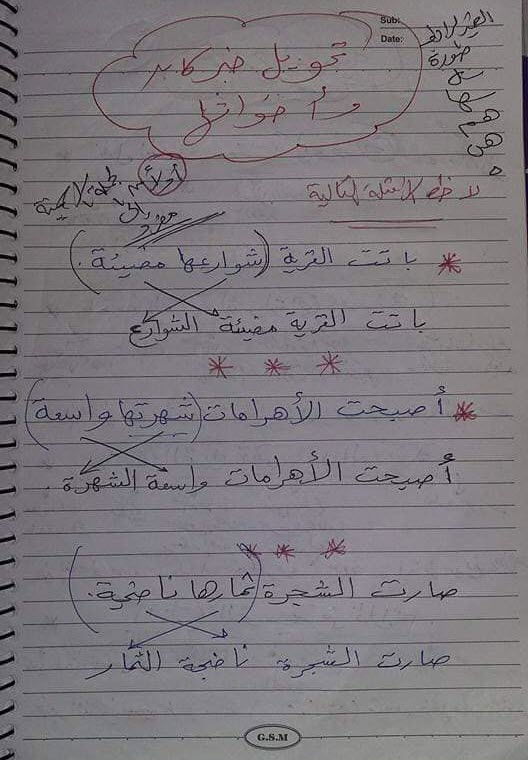 Sub:
Date:
تحويل خبر كاد
وأخواتها
ها
هم
هن
أولاً
لاحظ الأمثلة التالية
باتت القرية (شوارعها مضيئة).
باتت القرية مضيئة الشوارع
أصبحت الأهرامات (شهرتها واسعة)
أصبحت الأهرامات واسعة الشهرة.
صارت الشجرة (ثمارها ناضجة).
صارت الشجرة ناضجة الثمار
G.S.M